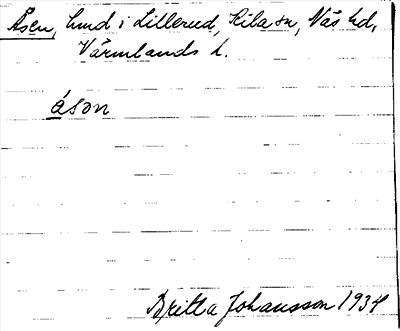 Åsen, lund i Lillerud, Kila sn, Näs hd,
Värmlands l.
åson
Britta Johansson 1934